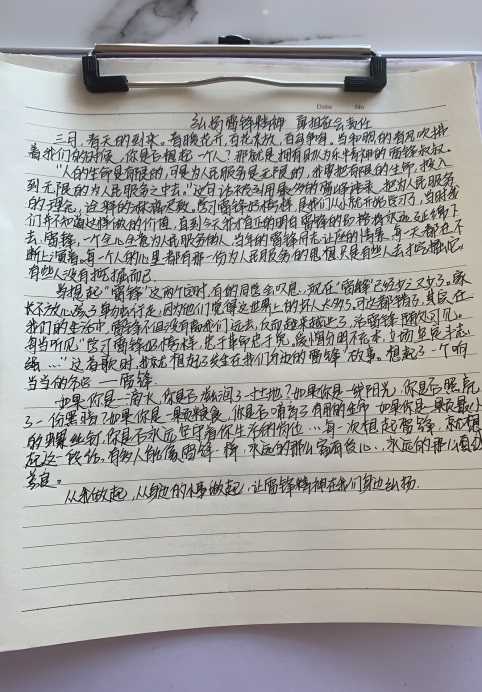 Date No
弘扬雷锋精神 肩担社会责任
三月,春天的到来。春暖花开,百花齐放,百鸟争鸣。当和煦的春风吹拂
着我们的时候,你是否想起一个人?那就是拥有助人为乐牛背拥的雷锋叔叔。
"人的生命是有限的,可是为人民服务是无限的,我要把有限的生命,投入
到无限的为人民服务之中去。"这句话
的理念,诠释的淋漓尽致。学习雷锋好榜样,是我们从小就开始学习了,当时我
们并不知道这样做的价值,直到今天我才真正的明白雷锋的
去。雷锋,一个全心全意为人民服务的人,当年的雷锋
断上演着。每一个人的心里都有那一份为人民服务的思想只是有些人去挖掘呢,
有些人没有挖掘而已。
当想起"雷锋"这两个词时,有的同学会叹息,现在"雷锋"已经少之又少了。家
长不放心孩子单独行走,因为他们觉得这世界上的坏人太多了。可这都错了,其实在
我们的生活中,雷锋不但没有离我们远去,反而越来越近了,活雷锋随处可见。
每当听见"学习雷锋好榜样,忠于革命忠于党,爱憎分明不忘本,立场坚定斗志
强…"这首歌时,我就想起了发生在我们身边的"雷锋"故事。想起了一个响
当当的名字——雷锋。
如果你是一滴水,你是否滋润了一寸土地?如果你是一线阳光,你是否照亮
了一份黑暗?如果你是一颗粮食,你是否哺育了有用的生命 如果你是一颗最小
的螺丝钉,你是否永远坚守着你生活的岗位…每一次想起雷锋,就想
起这一段话。有多少人能像雷锋一样,永远的那么富有爱心、永远的那么真切
善良。
从我做起,从身边的小事做起,让雷锋精神在我们身边弘扬.